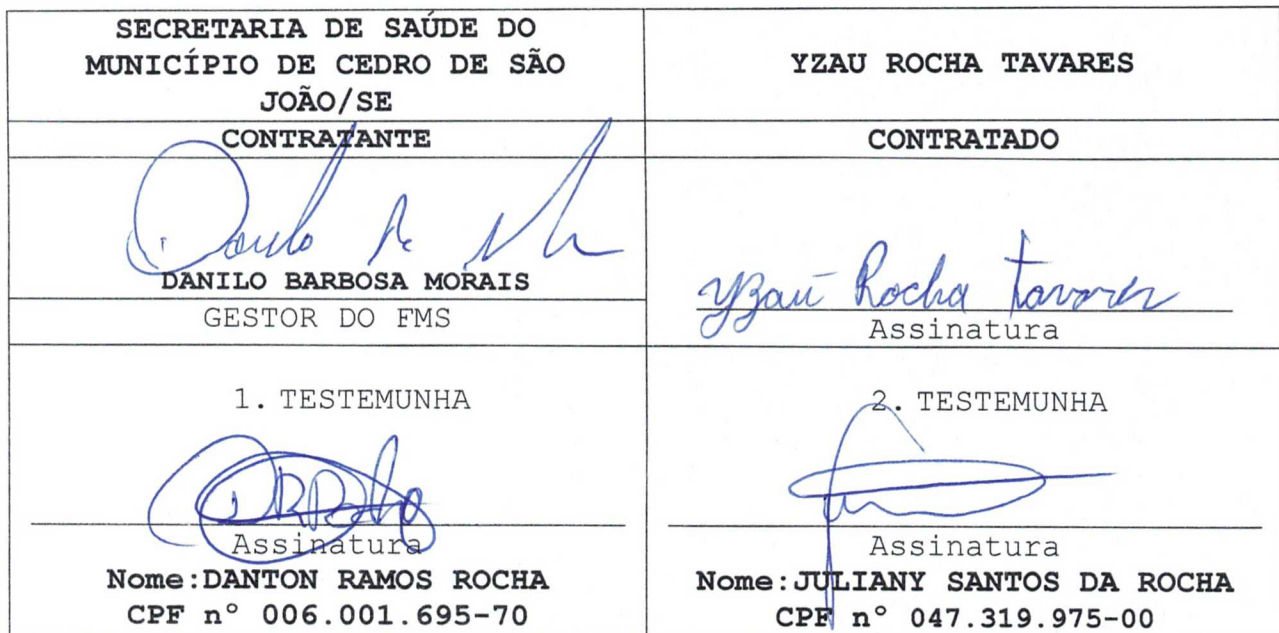 SECRETARIA DE SAÚDE DO
MUNICÍPIO DE CEDRO DE SÃO
JOÃO/SE
YZAU ROCHA TAVARES
CONTRATANTE
CONTRATADO
DANILO BARBOSA MORAIS
GESTOR DO FMS
Yzaú Rocha Tavares
Assinatura
1. TESTEMUNHA
2. TESTEMUNHA
Assinatura
Nome:DANTON RAMOS ROCHA
CPF n° 006.001.695-70
Assinatura
Nome:JULIANY SANTOS DA ROCHA
CPF n° 047.319.975-00